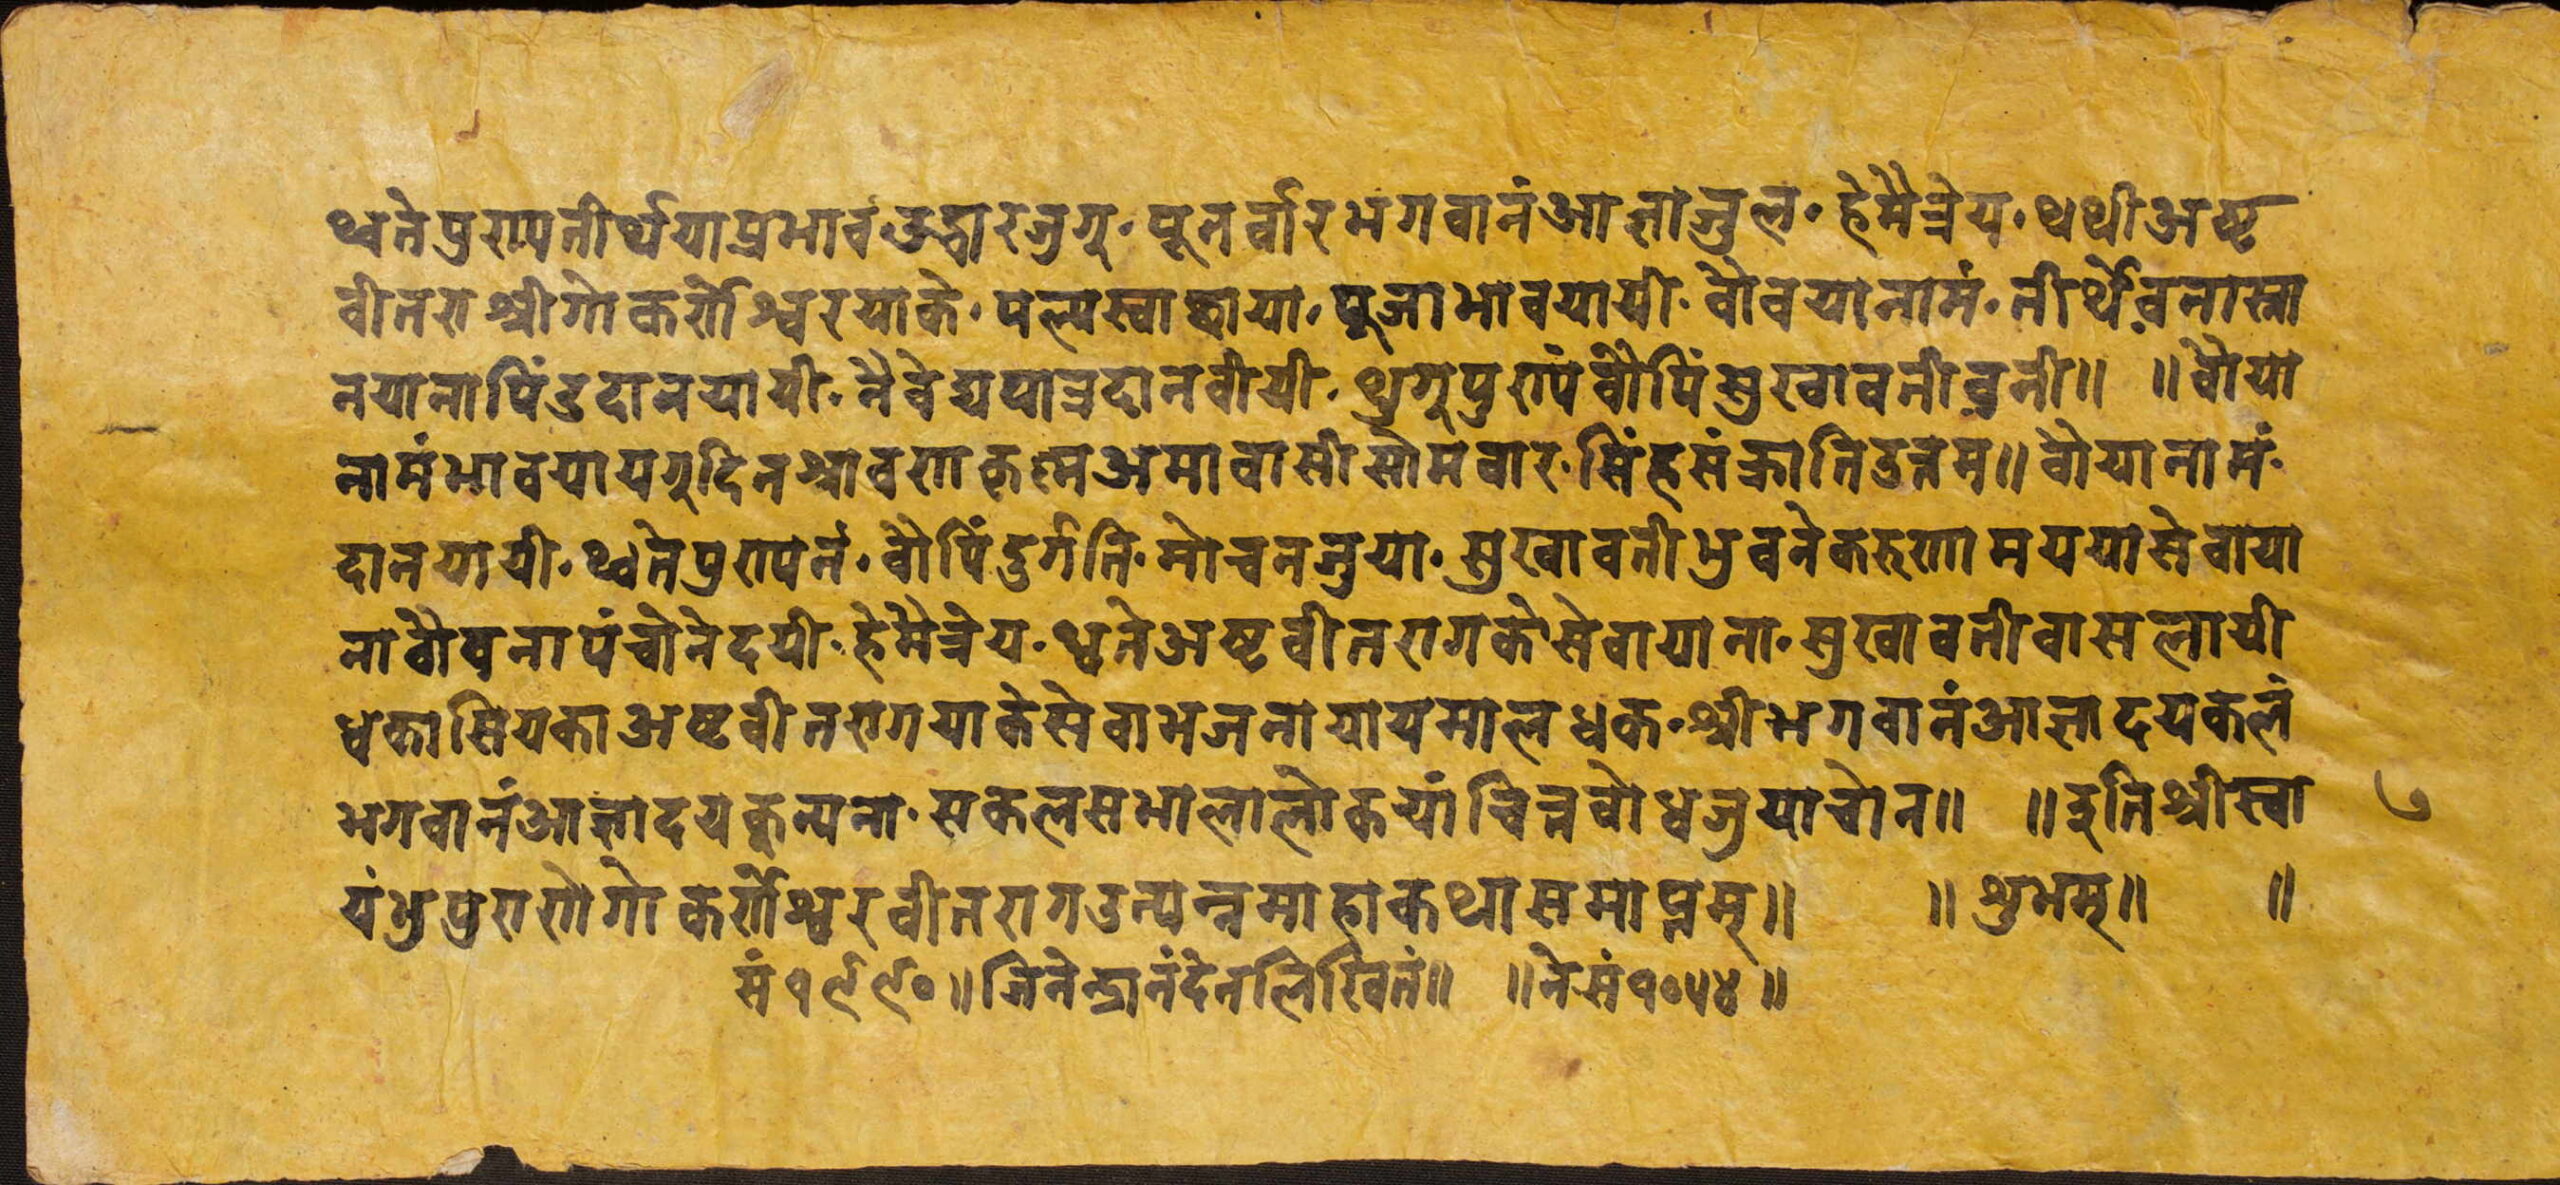 थ्वते पुराप तीर्थया प्रभाव उद्धार जुगू॰ पूनर्वार भगवानं आज्ञा जुल॰ हे मैत्रेय॰ थथी अष्ट
वीतरा श्री गोकर्णेश्वरयाके॰ पल्पस्वा छाया॰ पूजा भाव यायी॰ वौवया नामं॰ तीर्थे वना स्ना
न याना पिंडदान यायी॰ नैवेद्य पात्र दान वीयी॰ थुगू पुरापं वौपिं शुखावती वनी॥ ॥वौया
नामं भाव यायगू दिन श्रावण कृष्ण अमावासी सोमवार॰ सिंह संक्राति उत्तम॥ वौया नामं॰
दान यायी॰ थ्वते पुरापनं॰ वौपिं दुर्गति॰ मोचन जुया॰ सुखावती भुवने करुणामयया सेवा या
ना वौवनापं चोने दयी॰ हे मैत्रेय॰ थ्वते अष्टवीतरागके सेवा याना॰ सुखावती वास लायी
धका सियका अष्टवीतरागयाके सेवा भजना यायमाल धक॰ श्री भगवानं आज्ञा दयकलं
भगवानं आज्ञा दयकूत्यना॰ सकल सभालालोकयां चित्त वोध जुया चोन॥ ॥इति श्री स्वा
यंभु पुराणे गोकर्णेश्वर वीतराग उत्पन्न माहाकथा समाप्तम्॥ ॥शुभम्॥ ॥
७
सं १९९० ॥ जिनेन्द्रानंदेन लिखितं॥ ॥ने सं १०५४॥